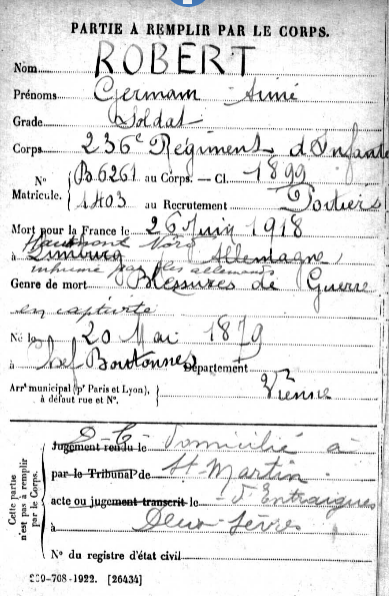 PARTIE A REMPLIR PAR LE CORPS.
Nom ROBERT
Prénoms Germain Aimé
Grade Soldat
Corps 236e Régiment d'Infante
N° Matricule. { B 6261 au Corps. — Cl. 1899
1403 au Recrutement Poitiers
Mort pour la France le 26 Juin 1918
Hautmond Nord
à Limburg Allemagne
inhumé par les allemands
Genre de mort Blessures de Guerre
en captivité
Né le 20 Mai 1879
à Chef Boutonnes Département
Arrt municipal (pr Paris et Lyon), à défaut rue et N°. { Vienne
Cette partie n'est pas à remplir par le Corps.
Jugement rendu le D-C- Domicilié à
par le Tribunal de St Martin
acte ou jugement transcrit le d'Entraigues
à Deux-Sèvres
N° du registre d'état civil
-708-1922. [26434]